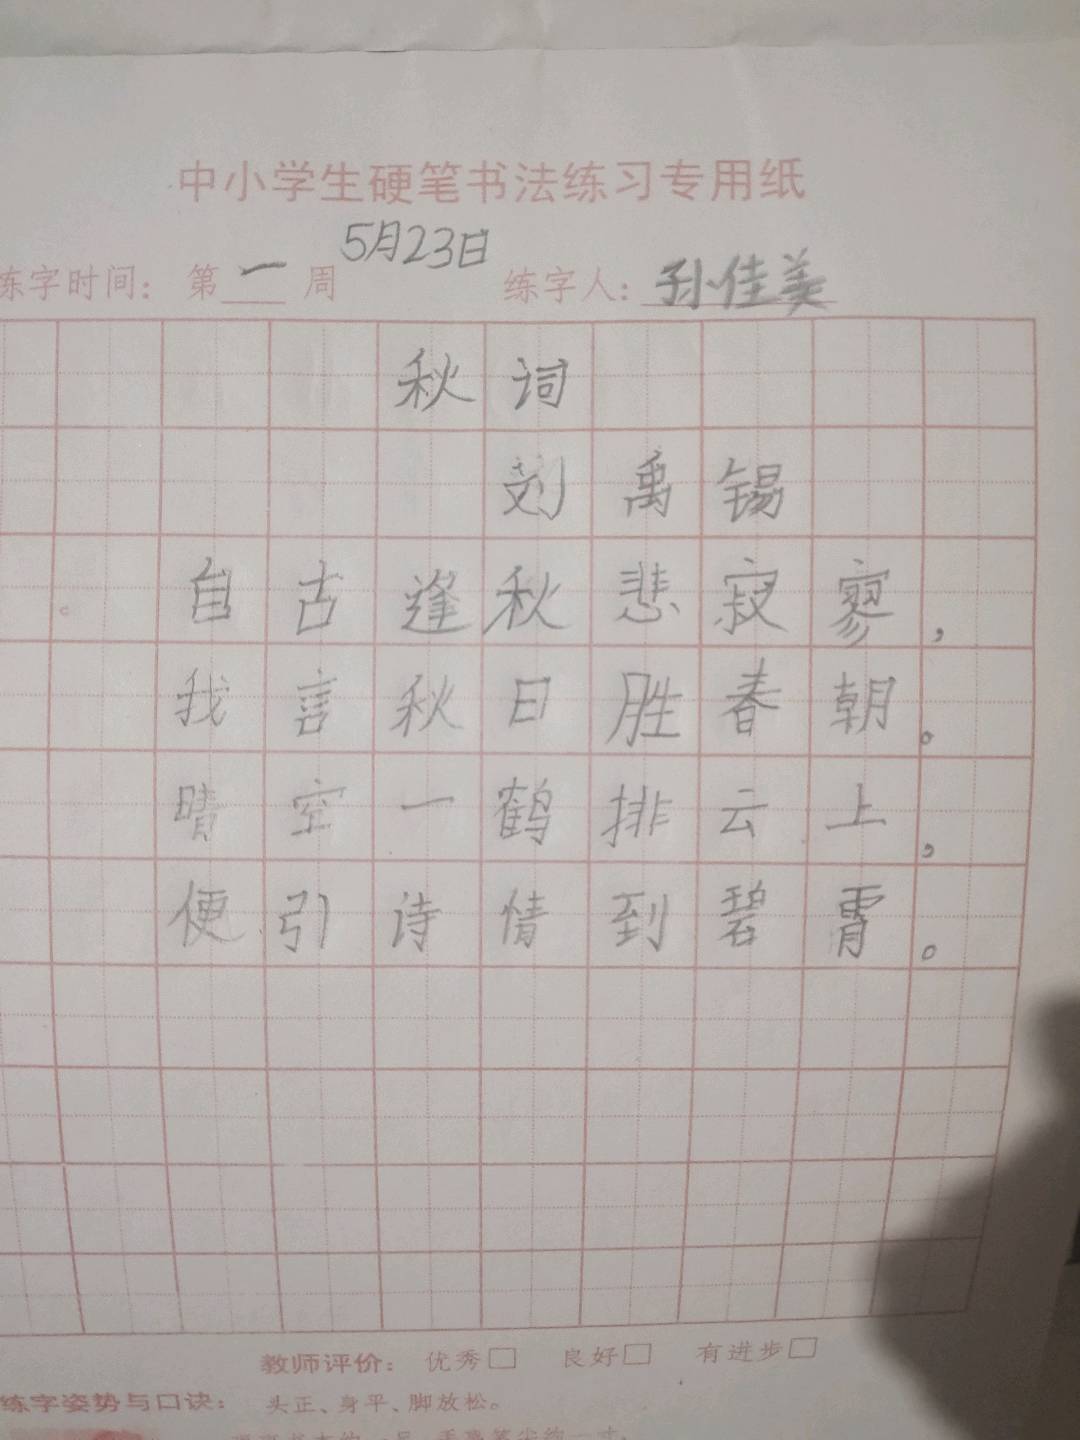 中小学生硬笔书法练习专用纸
5月23日
练字时间：第一周 练字人：孙佳美
秋词
刘禹锡
自古逢秋悲寂寥，
我言秋日胜春朝。
晴空一鹤排云上，
便引诗情到碧霄。
教师评价： 优秀□ 良好□ 有进步□
练字姿势与口诀： 头正、身平、脚放松。